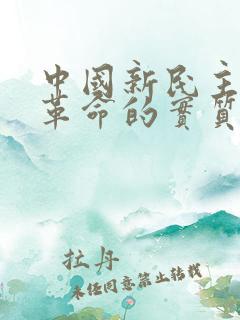 中國新民主
革命的實質
拉丹
未经同意禁止转载